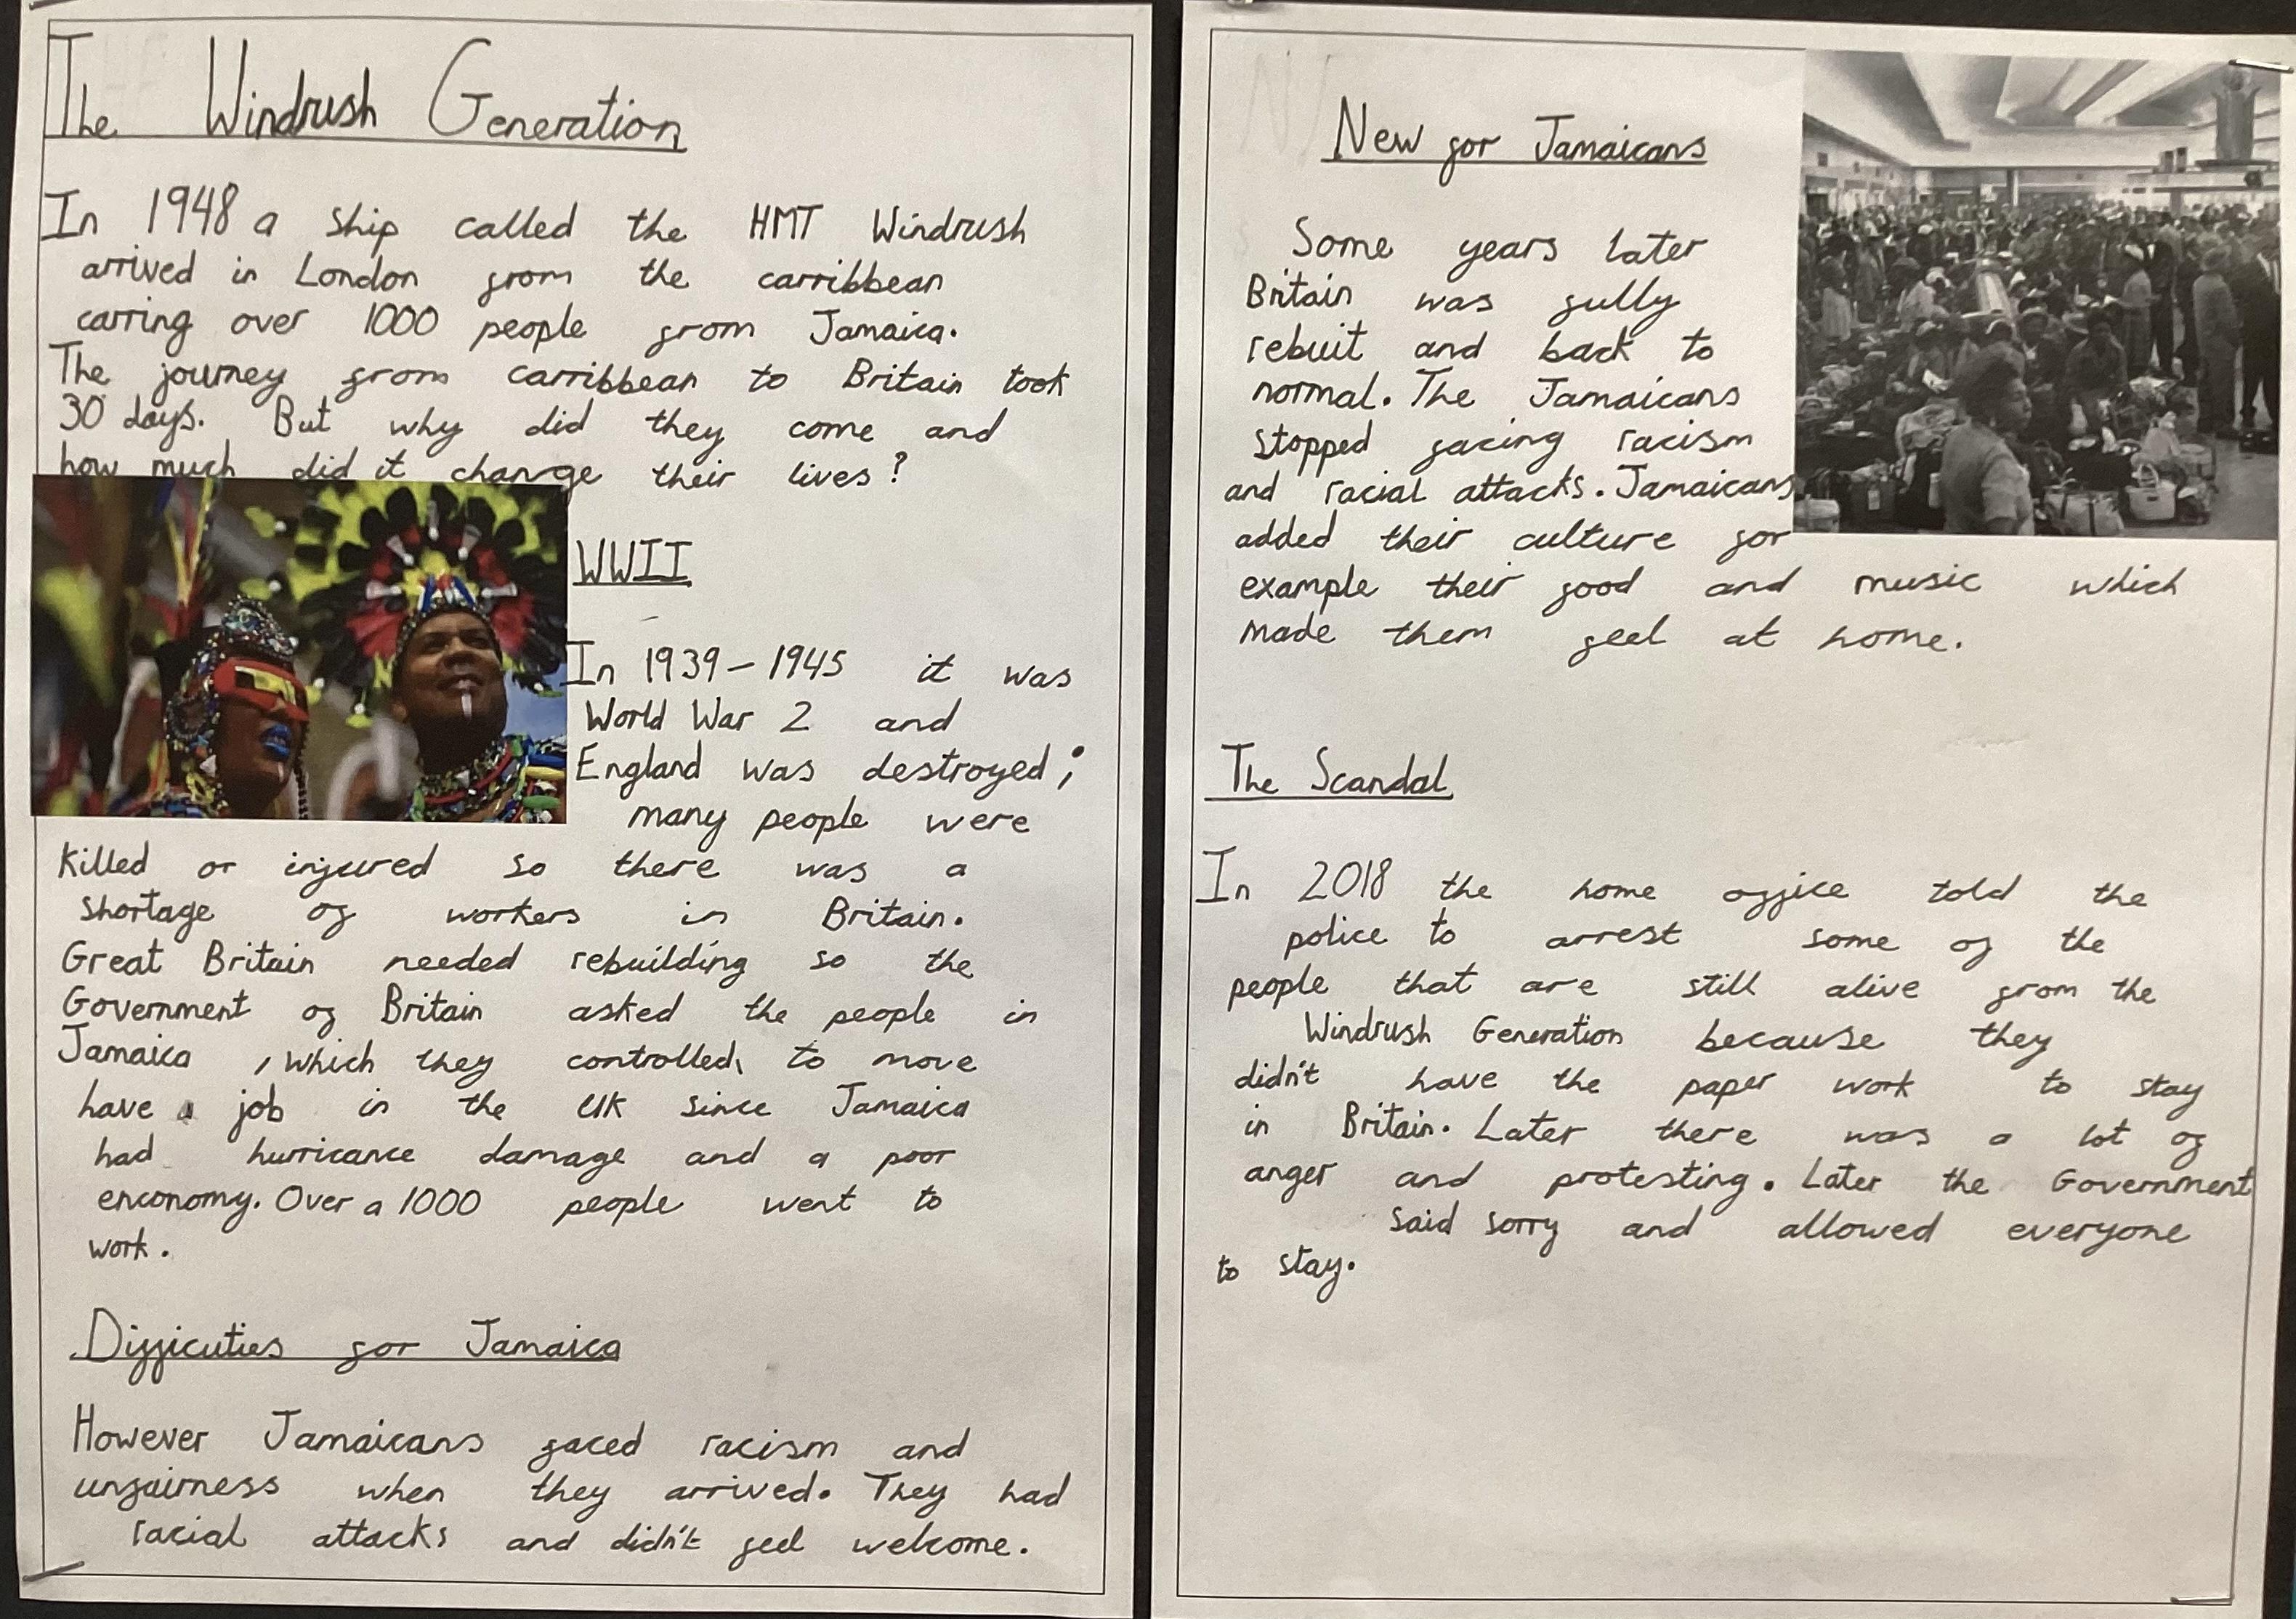 The Windrush Generation
In 1948 a ship called the HMT Windrush
arrived in London from the carribbean
carring over 1000 people from Jamaica.
The journey from carribbean to Britain took
30 days. But why did they come and
how much did it change their lives?
WWII
In 1939-1945 it was
World War 2 and
England was destroyed;
many people were
killed or injured so there was a
shortage of workers in Britain.
Great Britain needed rebuilding so the
Government of Britain asked the people in
Jamaica , which they controlled, to move
have a job in the UK since Jamaica
had hurricance damage and a poor
enconomy. Over a 1000 people went to
work.
Difficuties for Jamaica
However Jamaicans faced racism and
unfairness when they arrived. They had
racial attacks and didn't feel welcome.
New for Jamaicans
Some years later
Britain was fully
rebuit and back to
normal. The Jamaicans
stopped facing racism
and racial attacks. Jamaicans
added their culture for
example their food and music which
made them feel at home.
The Scandal
In 2018 the home office told the
police to arrest some of the
people that are still alive from the
Windrush Generation because they
didn't have the paper work to stay
in Britain. Later there was a lot of
anger and protesting. Later the Government
said sorry and allowed everyone
to stay.